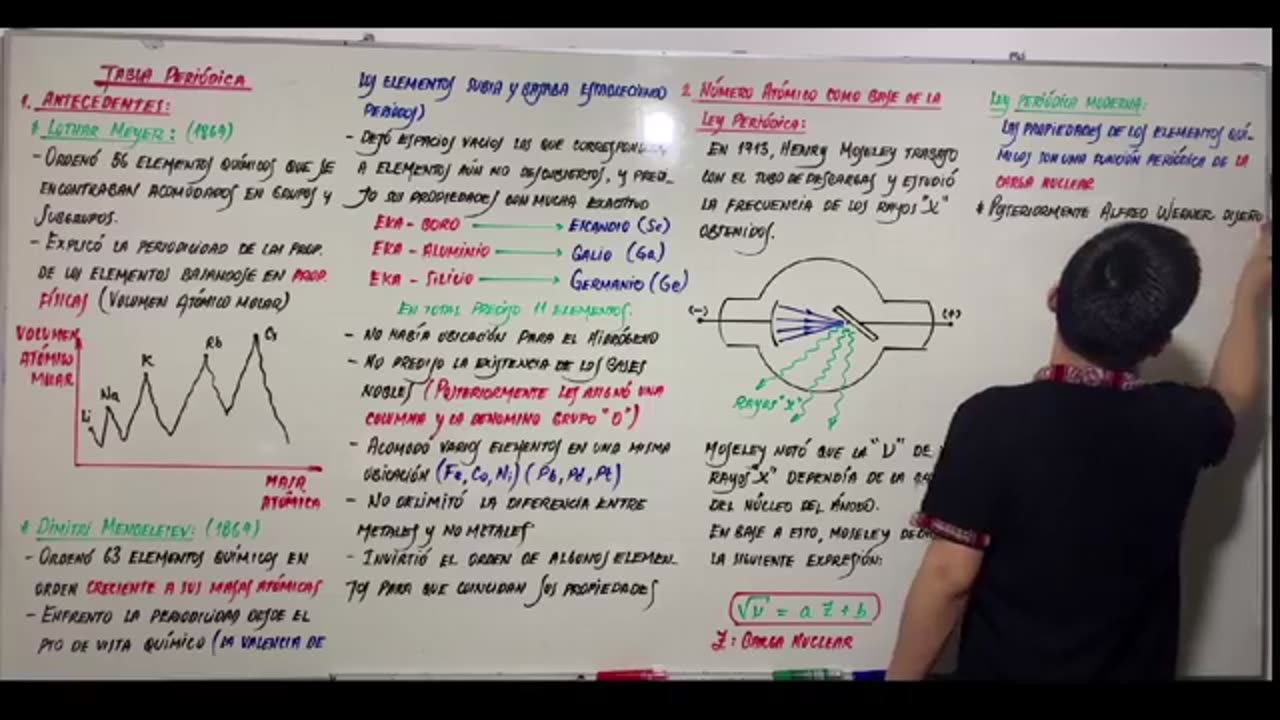 TABLA PERIÓDICA
1. ANTECEDENTES:
* LOTHAR MEYER: (1869)
- ORDENÓ 56 ELEMENTOS QUÍMICOS QUE SE
ENCONTRABAN ACOMODADOS EN GRUPOS Y
SUBGRUPOS.
- EXPLICÓ LA PERIODICIDAD DE LAS PROP.
DE LOS ELEMENTOS BASANDOSE EN PROP.
FÍSICAS (VOLUMEN ATÓMICO MOLAR)
VOLUMEN
ATÓMICO
MOLAR
Li
Na
K
Rb
Cs
MASA
ATÓMICA
* DIMITRI MENDELEIEV: (1869)
- ORDENÓ 63 ELEMENTOS QUÍMICOS EN
ORDEN CRECIENTE A SUS MASAS ATÓMICAS
- ENFRENTO LA PERIODICIDAD DESDE EL
PTO DE VISTA QUÍMICO (LA VALENCIA DE
LOS ELEMENTOS SUBIA Y BAJABA ESTABLECIENDO
PERIODOS)
- DEJÓ ESPACIOS VACIOS LOS QUE
A ELEMENTOS AÚN NO DESCUBIERTOS, Y PREDI_
JO SUS PROPIEDADES CON MUCHA EXACTITUD
EKA - BORO → ESCANDIO (Sc)
EKA - ALUMINIO → GALIO (Ga)
EKA - SILICIO → GERMANIO (Ge)
EN TOTAL PREDIJO 11 ELEMENTOS.
- NO HABÍA UBICACIÓN PARA EL HIDRÓGENO
- NO PREDIJO LA EXISTENCIA DE LOS GASES
NOBLES (POSTERIORMENTE LES ASIGNÓ UNA
COLUMNA Y LA DENOMINO GRUPO "O")
- ACOMODÓ VARIOS ELEMENTOS EN UNA MISMA
UBICACIÓN (Fe, Co, Ni) (Pb, Pd, Pt)
- NO DELIMITÓ LA DIFERENCIA ENTRE
METALES Y NO METALES
- INVIRTIÓ EL ORDEN DE ALGUNOS ELEMEN_
TOS PARA QUE COINCIDAN SUS PROPIEDADES
2. NÚMERO ATÓMICO COMO BASE DE LA
LEY PERIÓDICA:
EN 1913, HENRY MOSELEY TRABAJO
CON EL TUBO DE DESCARGAS Y ESTUDIÓ
LA FRECUENCIA DE LOS RAYOS "X"
OBTENIDOS.
(-)
(+)
RAYOS "X"
MOSELEY NOTÓ QUE LA "ν" DE
RAYOS "X" DEPENDÍA DE LA
DEL NÚCLEO DEL ÁNODO.
EN BASE A ESTO, MOSELEY
LA SIGUIENTE EXPRESIÓN:
√ν = a Z + b
Z: CARGA NUCLEAR
LEY PERIÓDICA MODERNA:
LAS PROPIEDADES DE LOS ELEMENTOS QUÍ-
MICOS SON UNA FUNCIÓN PERIÓDICA DE LA
CARGA NUCLEAR
* POSTERIORMENTE ALFRED WERNER DISEÑO